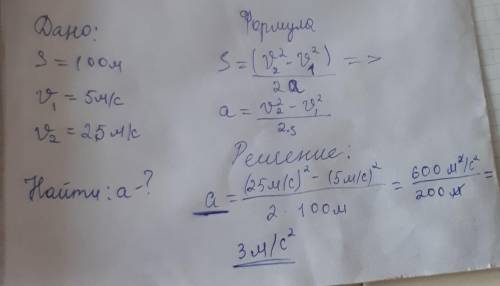 Дано:
S = 100м
v₁ = 5м/с
v₂ = 25м/с
Найти: a - ?
Формула
S = (v₂² - v₁²) / 2a =>
a = v₂² - v₁² / 2·s
Решение:
a = (25м/с)² - (5м/с)² / 2 · 100м = 600 м²/с² / 200 м =
3 м/с²